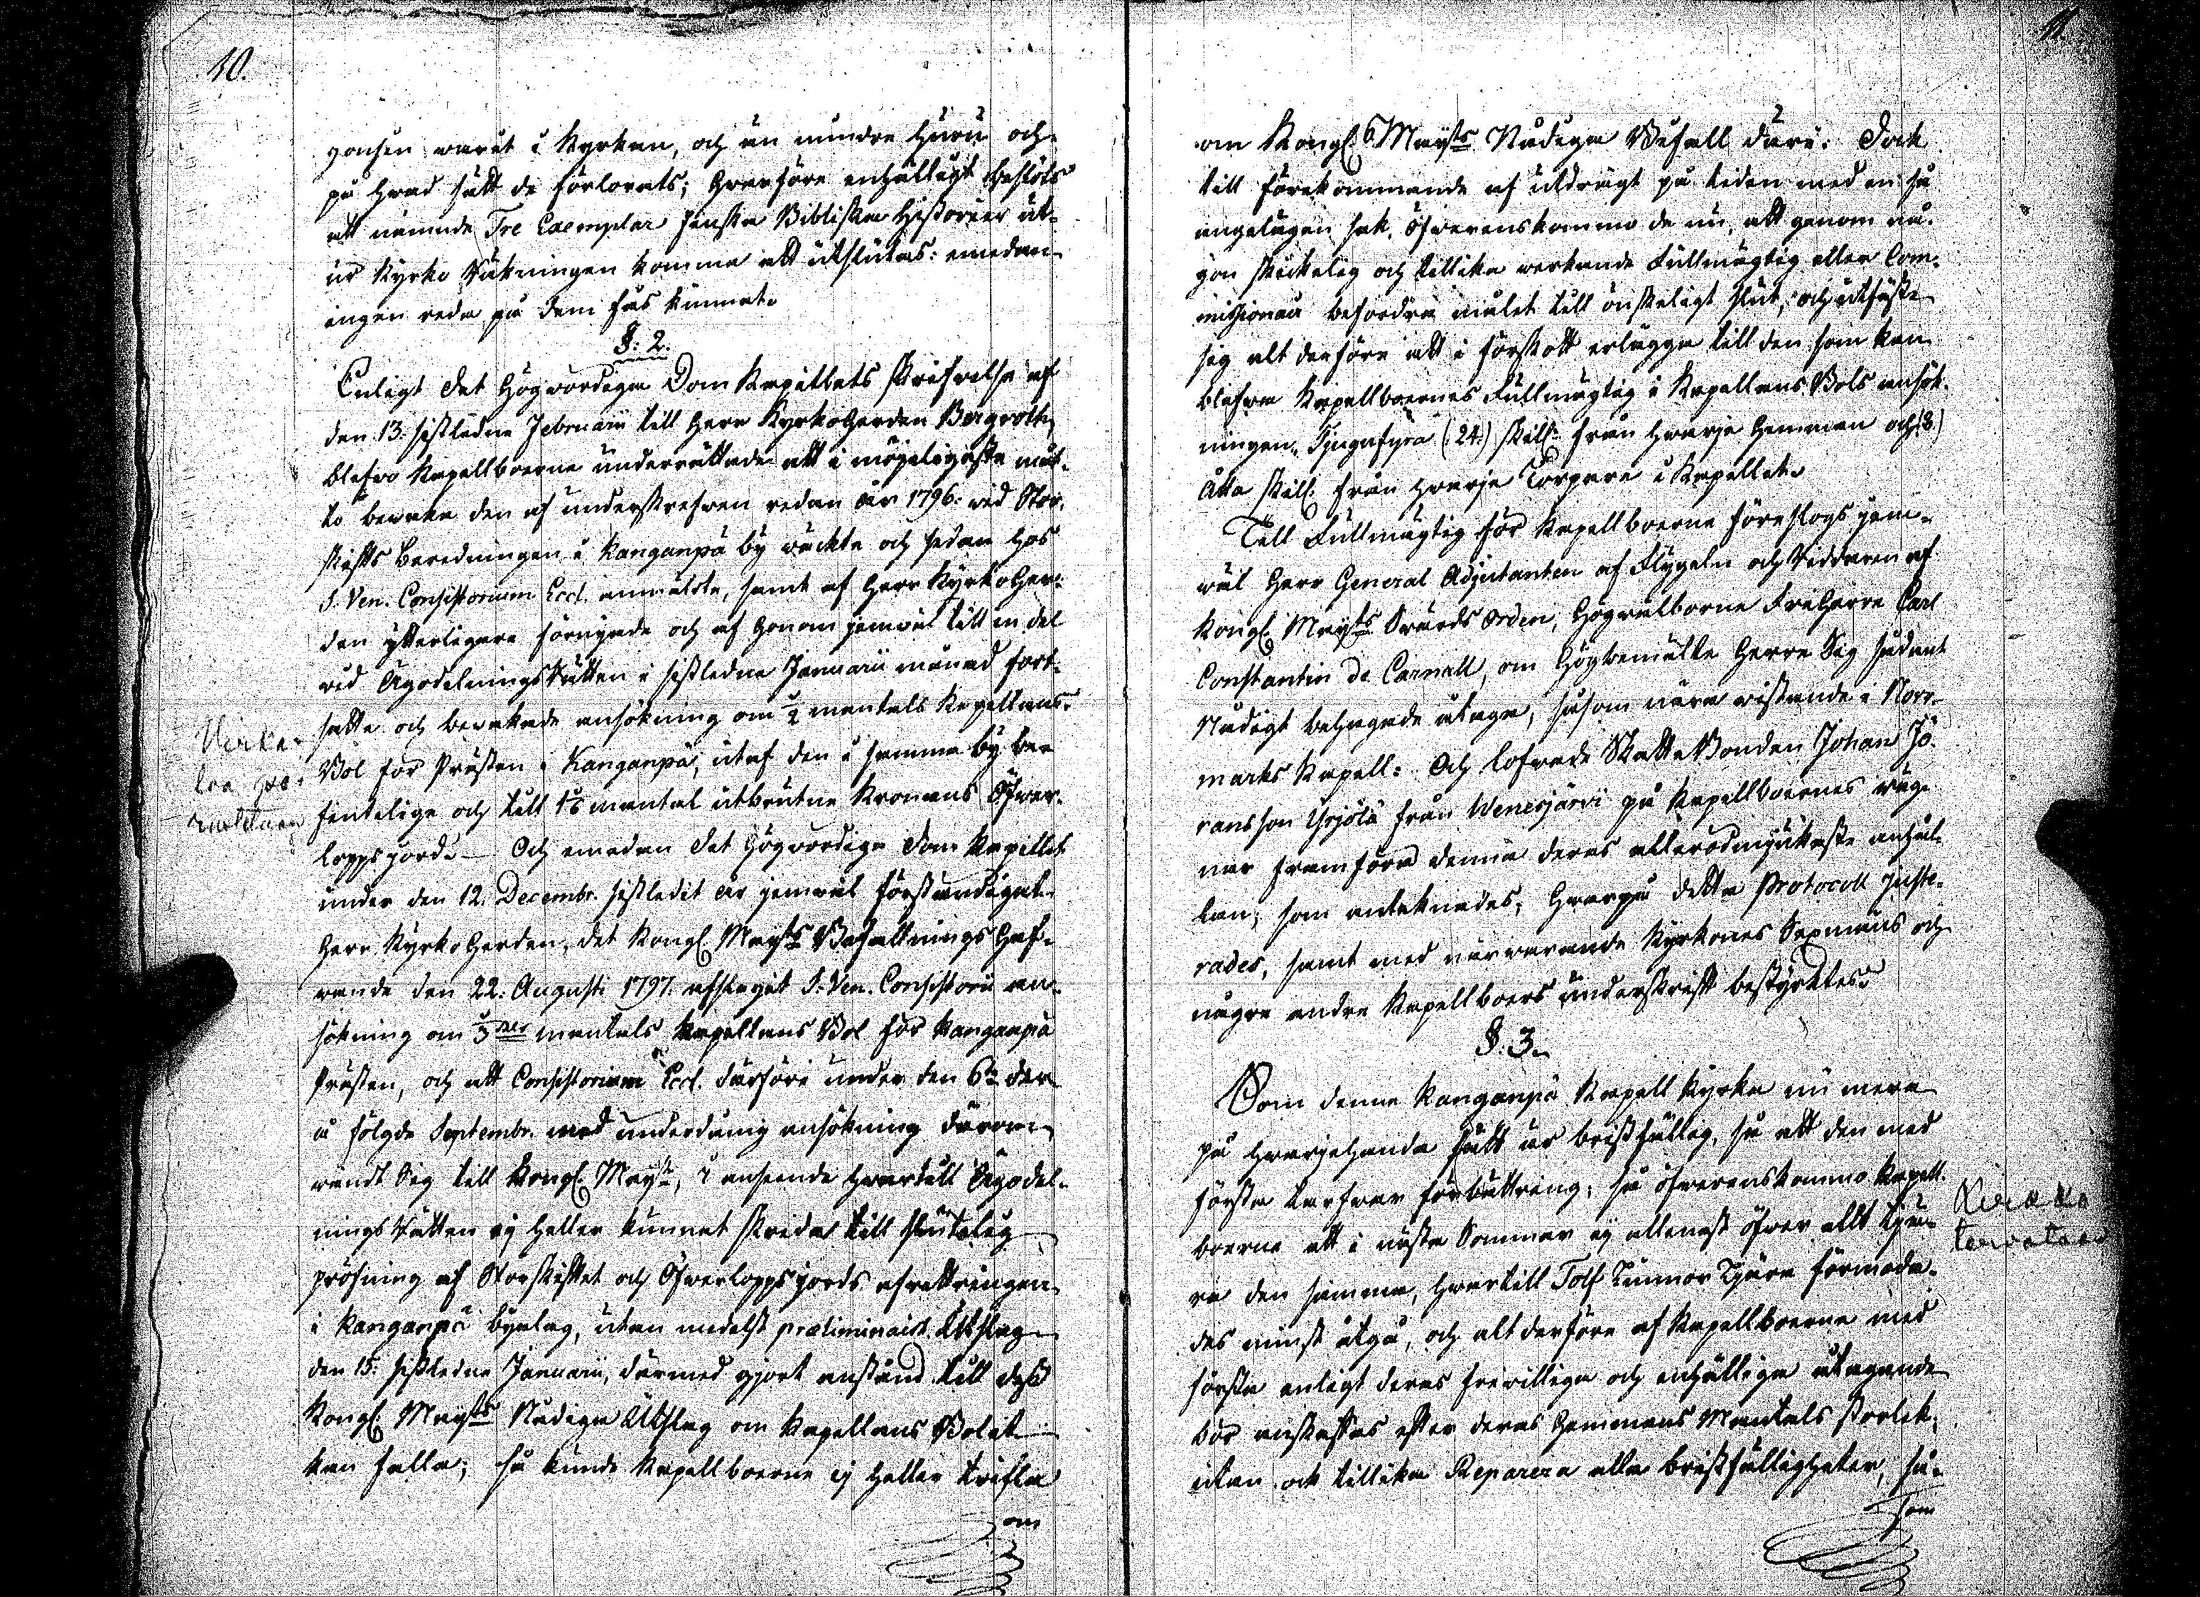 10.
gonsen warit i Kyrkan, och än mindre huru och
på hvad sätt de förlorats; hvarföre enhälligt beslöts
att nämnde Tre Exemplar finska Bibliska Historier ut-
ur Kyrko Räkningen komma att uteslutas: emedan
ingen reda på dem fås kunnat.
§: 2.
Enligt det Högwördiga Dom Kapitlets skrifwelse af
den 13: sistledne Februarii till Herr KyrkoHerden Bergroth,
blefwo Kapellboerne underrättade att i möjeligaste måt-
to bewaka den af underskrefwen redan år 1796: wid Stor-
skifts beredningen i Kanganpä by wäckta och sedan hos
S. Ven. Consistorium Eccl. anmälda, samt af Herr KyrkoHer-
den ytterligare förnyade och af honom jemwäl till en del
wid ÄgodelningsRätten i sistledne Januarii månad fort-
satte och bewakade ansökning om ½ mantals Kapellans-
Bol för Prästen i Kanganpä, utaf den i samma by be-
finteliga och till 1⅙ mantal utbrutne Kronans Öfwer-
loppsjord. — Och emedan det Högwördiga Dom Kapitlet
under den 12. Decembr. sistledit år jemwäl förständigat
Herr KyrkoHerden, det Kongl. Maysts Befallnings Haf-
wande den 22: Augusti 1797. afslagit S. Ven. Consistorii an-
sökning om ⅓ mantals Kapellans Bol för Kanganpä
Prästen, och att Consistorium Eccl. därföre under den 6te der-
å följde Septembr. med underdånig ansökning därom
wändt Sig till Kongl. Mayst, i anseende hwartill Ägodel-
ningsRätten ej heller kunnat skrida till slutelig
pröfning af Storskiftet och Öfwerloppsjords afrattningen
i Kanganpä byalag, utan medelst præliminairt Utslag
den 15: sistledne Januarii, därmed gjort anstånd till dess
Kongl. Maysts Nådiga Utslag om Kapellans Bolet
kan falla; så kunde Kapellboerne ej heller twifla
om
11.
om Kongl. Maysts Nådiga Bifall däri: Dock
till förekommande af utdrägt på tiden med en så
angelägen sak, öfwerenskommo de nu, att genom nå-
gon skickelig och tillika werkande Fullmägtig eller Com-
missionair befordra målet till önskeligt slut, och utfäste
sig alt derföre att i förskott erlägga till den som kan
blefwa Kapellboernes Fullmägtig i Kapellans Bols ansök-
ningen, Tjugufyra (24) skill: från hwarje Hemman och (8)
Åtta skill. från hwarje Torpare i Kapellet.
Till Fullmägtig för Kapellboerne föreslogs jem-
wäl Herr General Adjutanten af Flygeln och Riddaren af
Kongl. Maysts Swärds Orden, Högwälborne FriHerre Carl
Constantin de Carnall, om Högbemälte Herre Sig sådant
Nådigt behagade åtaga, såsom nära wistande i Norr-
marks Kapell: Och lofwade SkatteBonden Johan Jö-
ransson Yrjölä från Wenesjärvi på Kapellboernes wäg-
nar framföra denna deras allerödmjukaste anhål-
lan; som antecknades; hwarpå detta Protocoll juste-
rades, samt med närwarande Kyrkones Sexmäns och
några andra Kapellboers underskrift bestyrktes.
§: 3.
Som denna Kanganpä Kapell Kyrka nu mera
på hwarjehanda sätt är bristfällig, så att den med
första tarfwar förbättring; så öfwerenskommo Kapell-
boerne att i nästa Sommar ej allenast öfwer allt tjä-
ra den samma, hwartill Tolf Tunnor Tjära förmoda-
des minst åtgå, och alt derföre af Kapellboerne med
första enligt deras friwilliga och enhälliga åtagande
bör anskaffas efter deras Hemmans Mantals storlek;
utan ock tillika Reparera alla bristfälligheter, så-
som